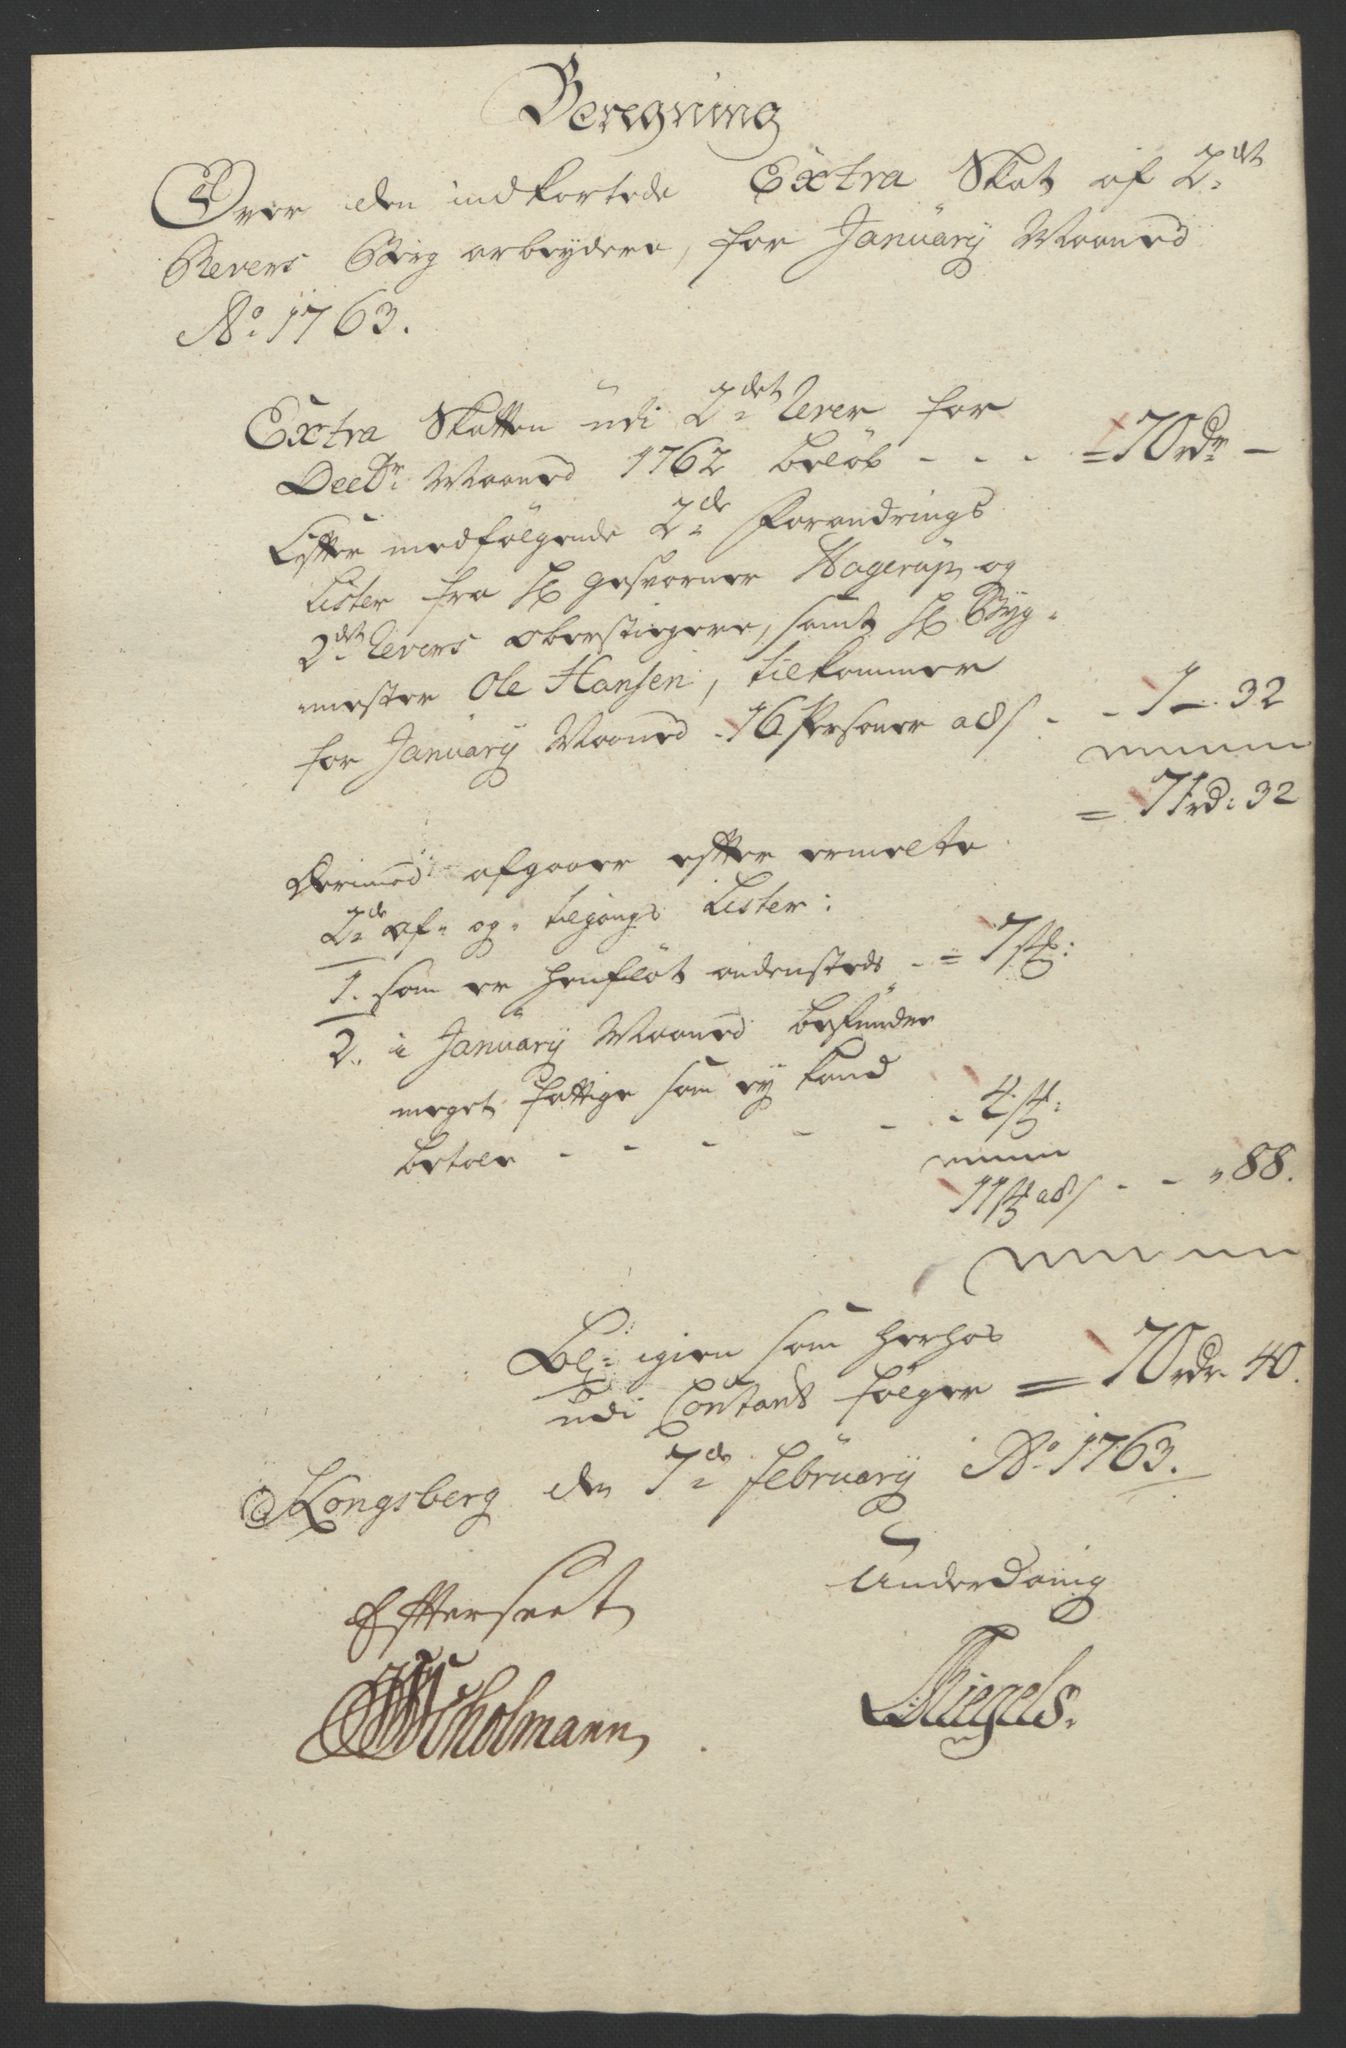 Beregning
Over den indkortede Extra Skat af 2det
Revers Berg arbeydere, for January Maaned
Ao 1763.
Extra Skatten udi 2det Rever for
Decbr: Maaned 1762 beløb - - - = 70 rdr -
Efter medfølgende 2de Forandrings
Lister fra Hr Gesvorner Hagerup og
2det Revers Oberstiegere, samt Hr Byg-
mester Ole Hansen, tilkommer
for January Maaned 16 Personer a 8 s - - 1 - 32
= 71 rd: 32
Derimod afgaaer efter ermelte
2de af- og- tilgangs Lister:
1. som er henfløt andensteds - = 7 st:
2. i January Maaned befunder
meget fattige som ey kand
betale - - - - - - 4 st:
11 st a 8 s - - " 88.
Bl: igien som herhos
udi Contant følger = 70 rdr 40.
Kongsberg den 7de February Ao 1763.
Efterseet
Underdanig
Tholmann
Riegels.